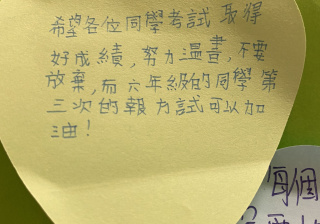 希望各位同學考試取得
好成績,努力溫書,不要
放棄,而六年級的同學第
三次的報方試可以加
油!
每個